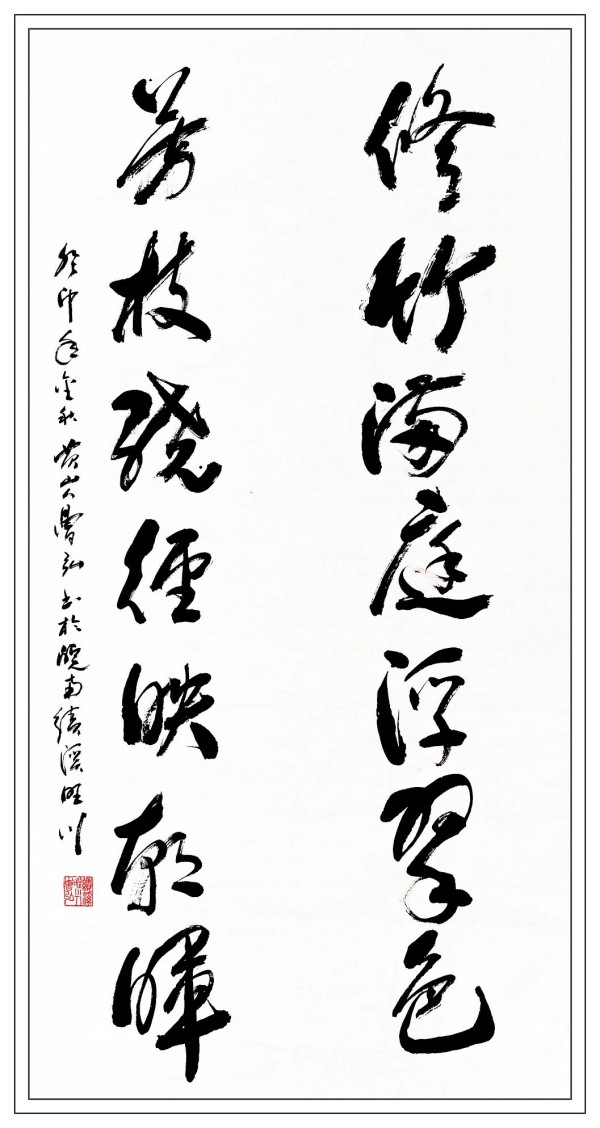 修竹满庭浮翠色
芳枝绕径映朝晖
癸卯年金秋黄山曹弘书于皖南绩溪旺川